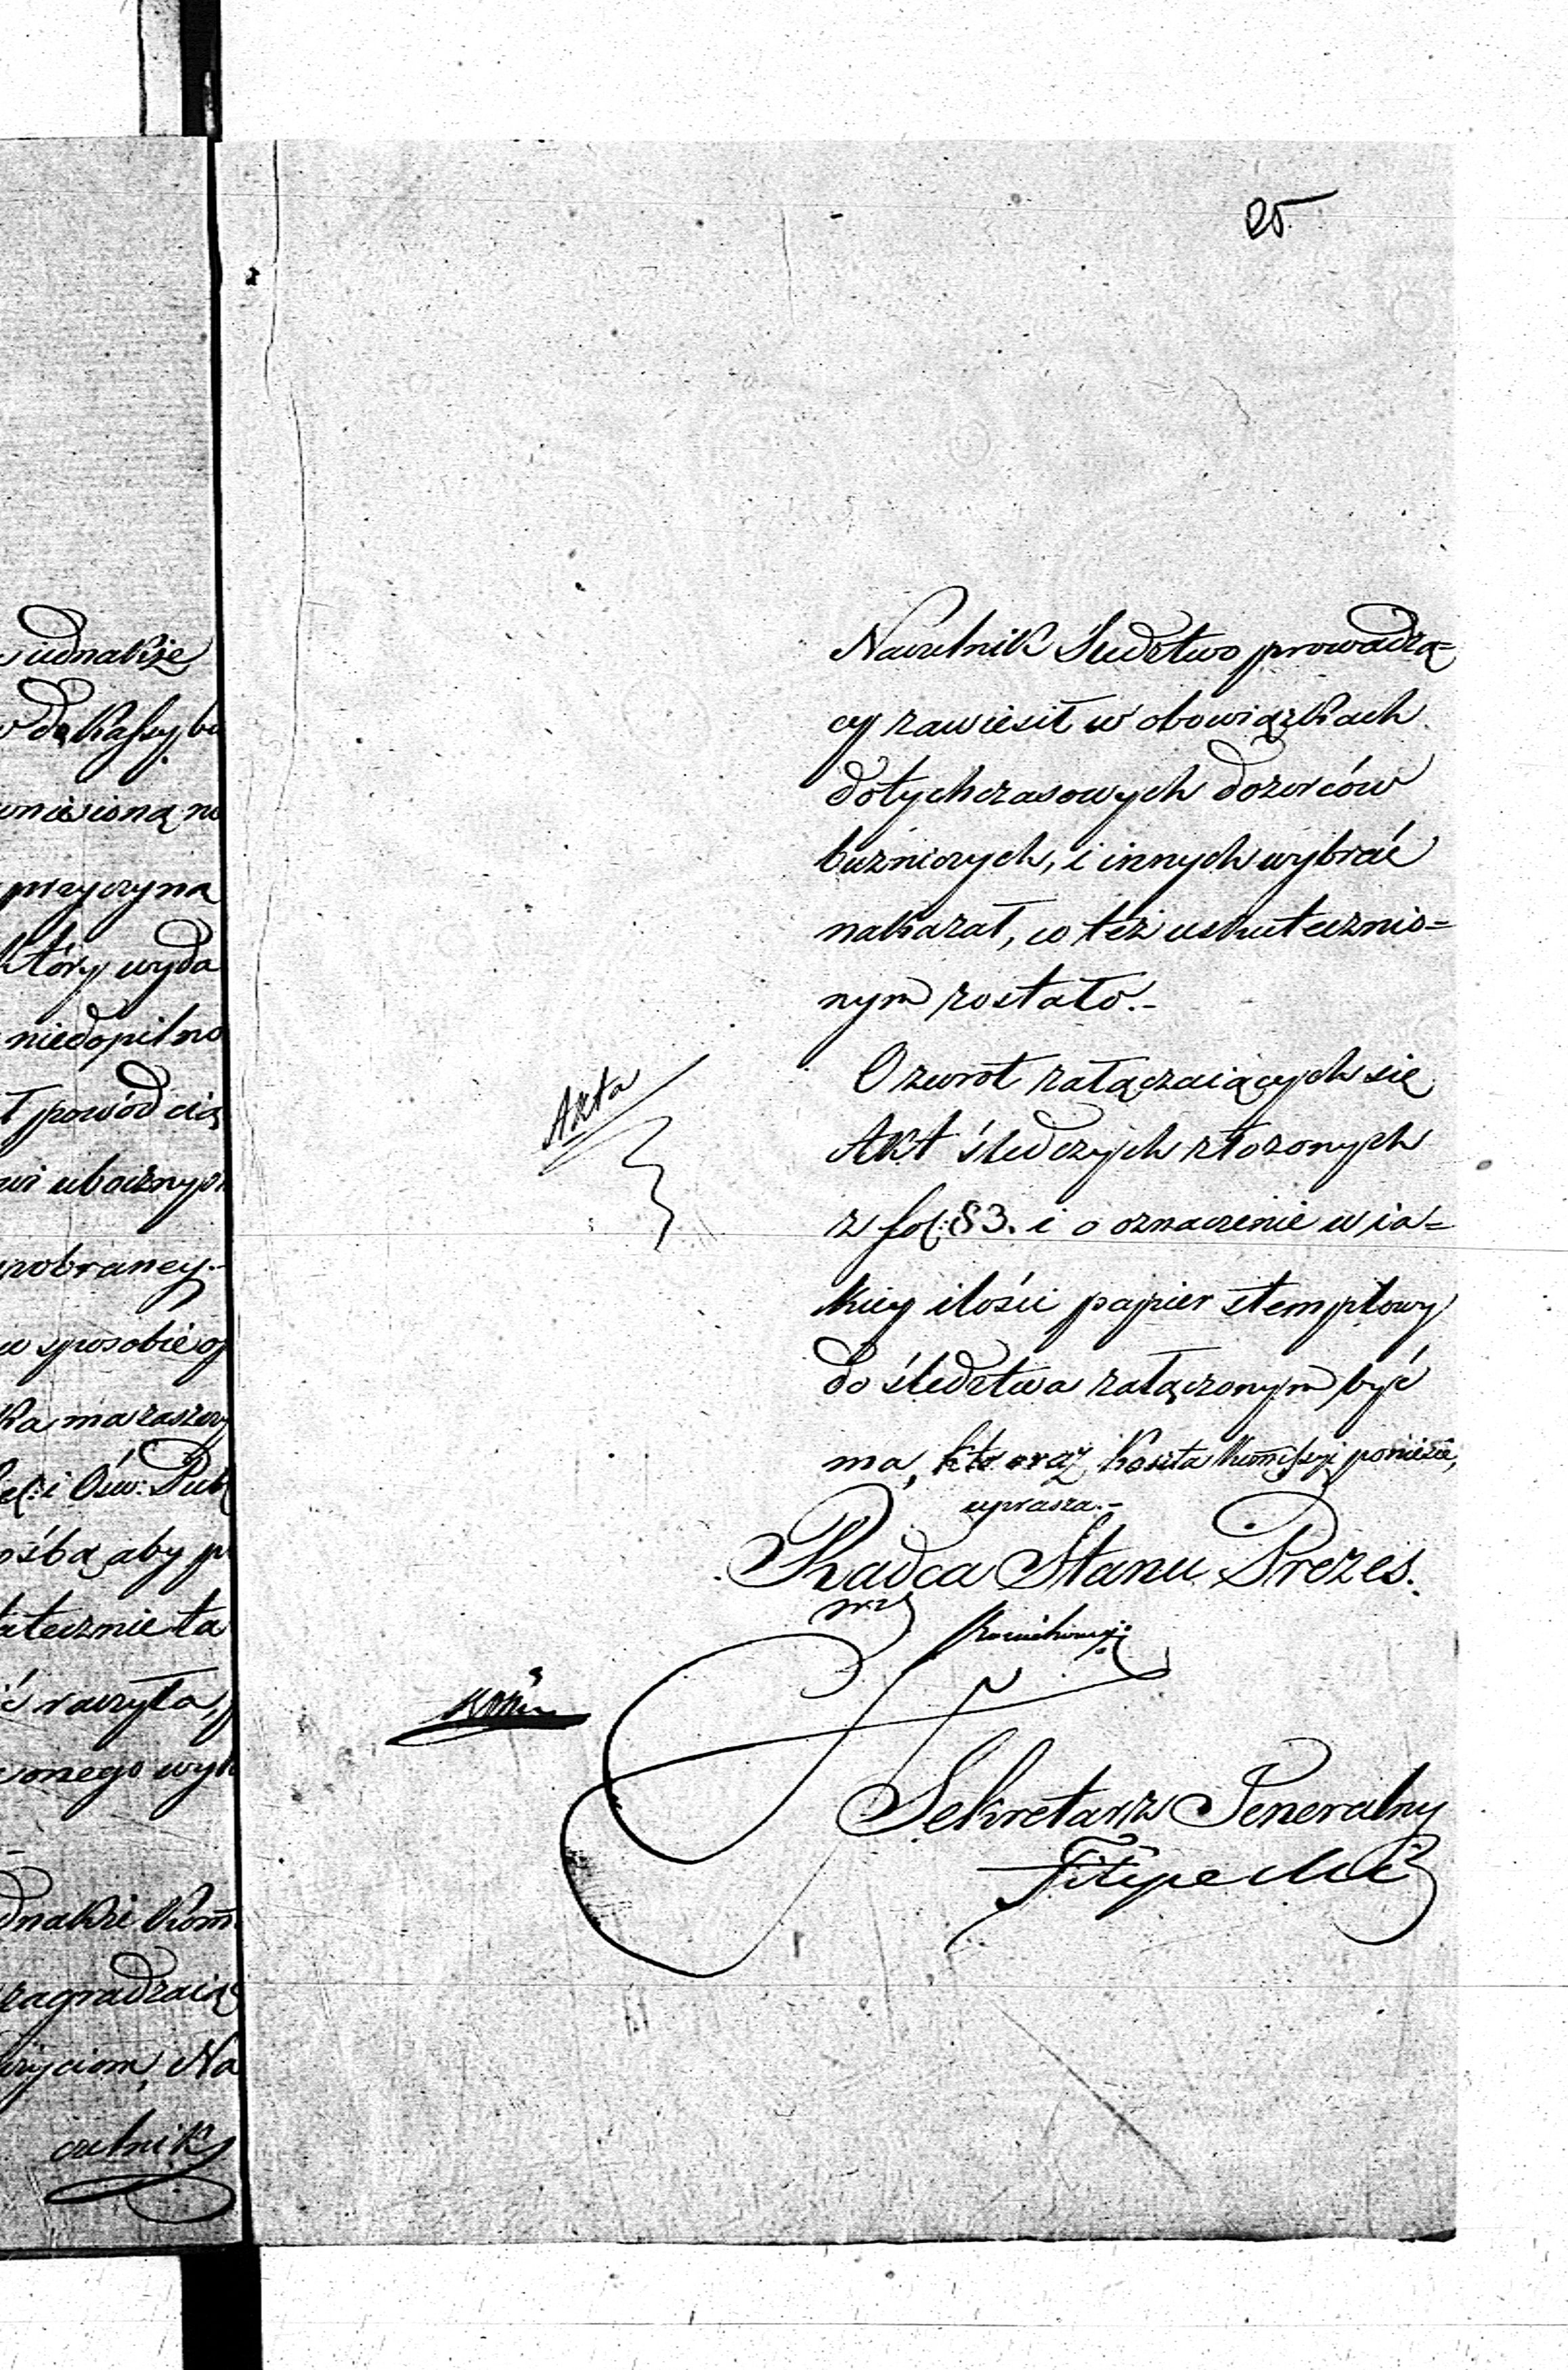 jednakże
do kassy
wniesioną
przyczyna
który wyda
niedopilno
powód
ubocznym
pobraney.
w sposobie
ma zaszczy
i Ośw: Publ
aby
tecznie ta
raczyła,
onego
Kom
zagradzaią
Na
czelnik
25.
Naczelnik Śledztwo prowadzą=
cy zawiesił w obowiązkach
dotychczasowych dozorców
bużniczych, i innych wybrać
nakazał, co też uskutecznio=
nym zostało.-
O zwrot załączaiących się
Akt śledczych złożonych
z fol: 83. i o oznaczenie w ia=
kiey ilości papier stemplowy
do śledztwa załączonym być
ma, kto oraz koszta Kommissyi poniesie,
uprasza.-
Akta
Radca Stanu Prezes.
Sekretarz Jeneralny
Filipecki